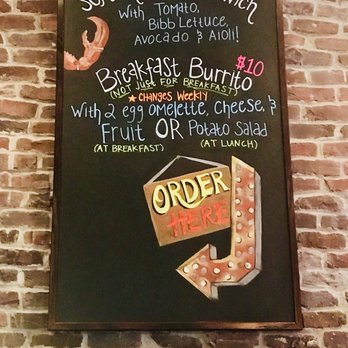 With Tomato,
Bibb Lettuce,
Avocado & Aioli!
Breakfast Burrito $10
(Not Just for Breakfast)
★ Changes Weekly
With 2 egg omelette, Cheese, &
Fruit OR Potato Salad
(At Breakfast) (At Lunch)
ORDER
HERE